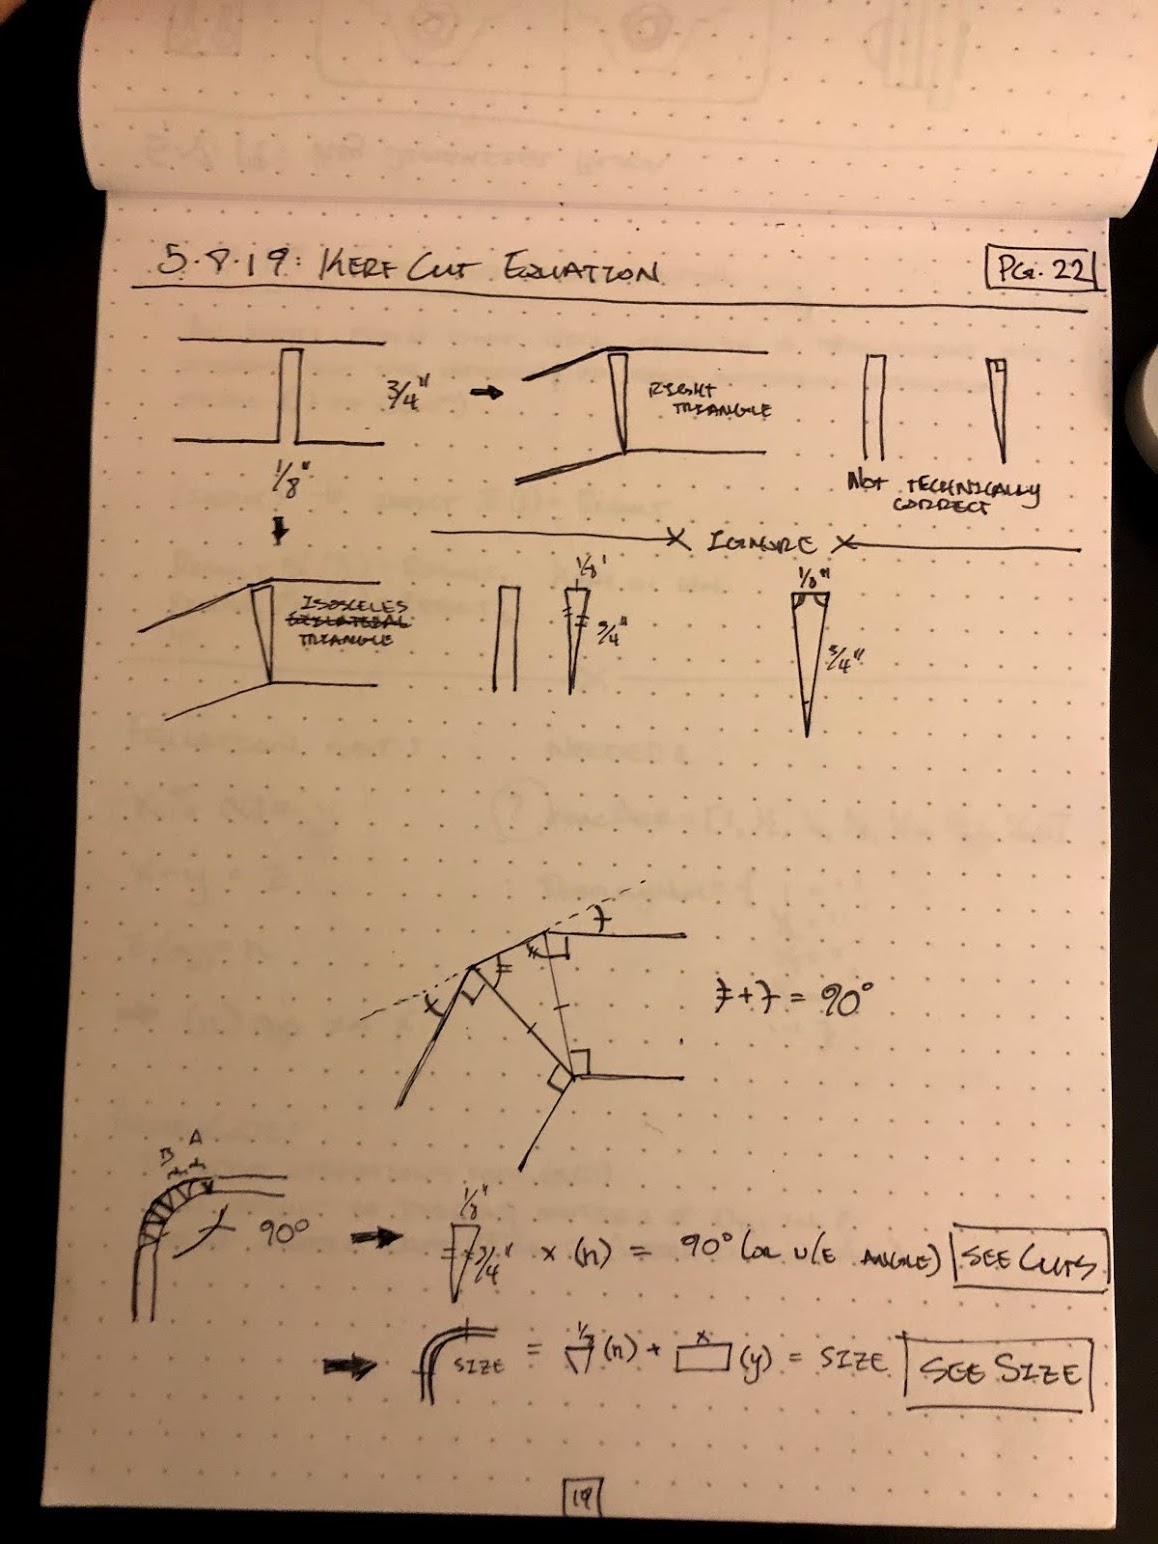 5.8.19: KERF CUT EQUATION
PG. 22
3/4"
1/8"
RIGHT
TRIANGLE
NOT TECHNICALLY
CORRECT
X IGNORE X
ISOSCELES
TRIANGLE
1/8'
3/4"
1/8"
3/4"
= 90°
B A
90°
1/8"
3/4" x (n) = 90° (or w/e ANGLE) SEE CUTS
SIZE = 1/8 (n) + x (y) = SIZE SEE SIZE
19